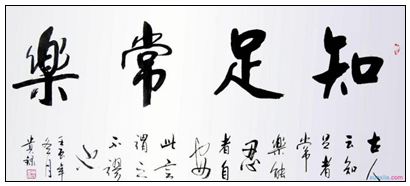 知足常樂
古人
云知
足者
常
樂能
忍
者自
安
此言
謂之
不謬
也
壬辰年
冬月